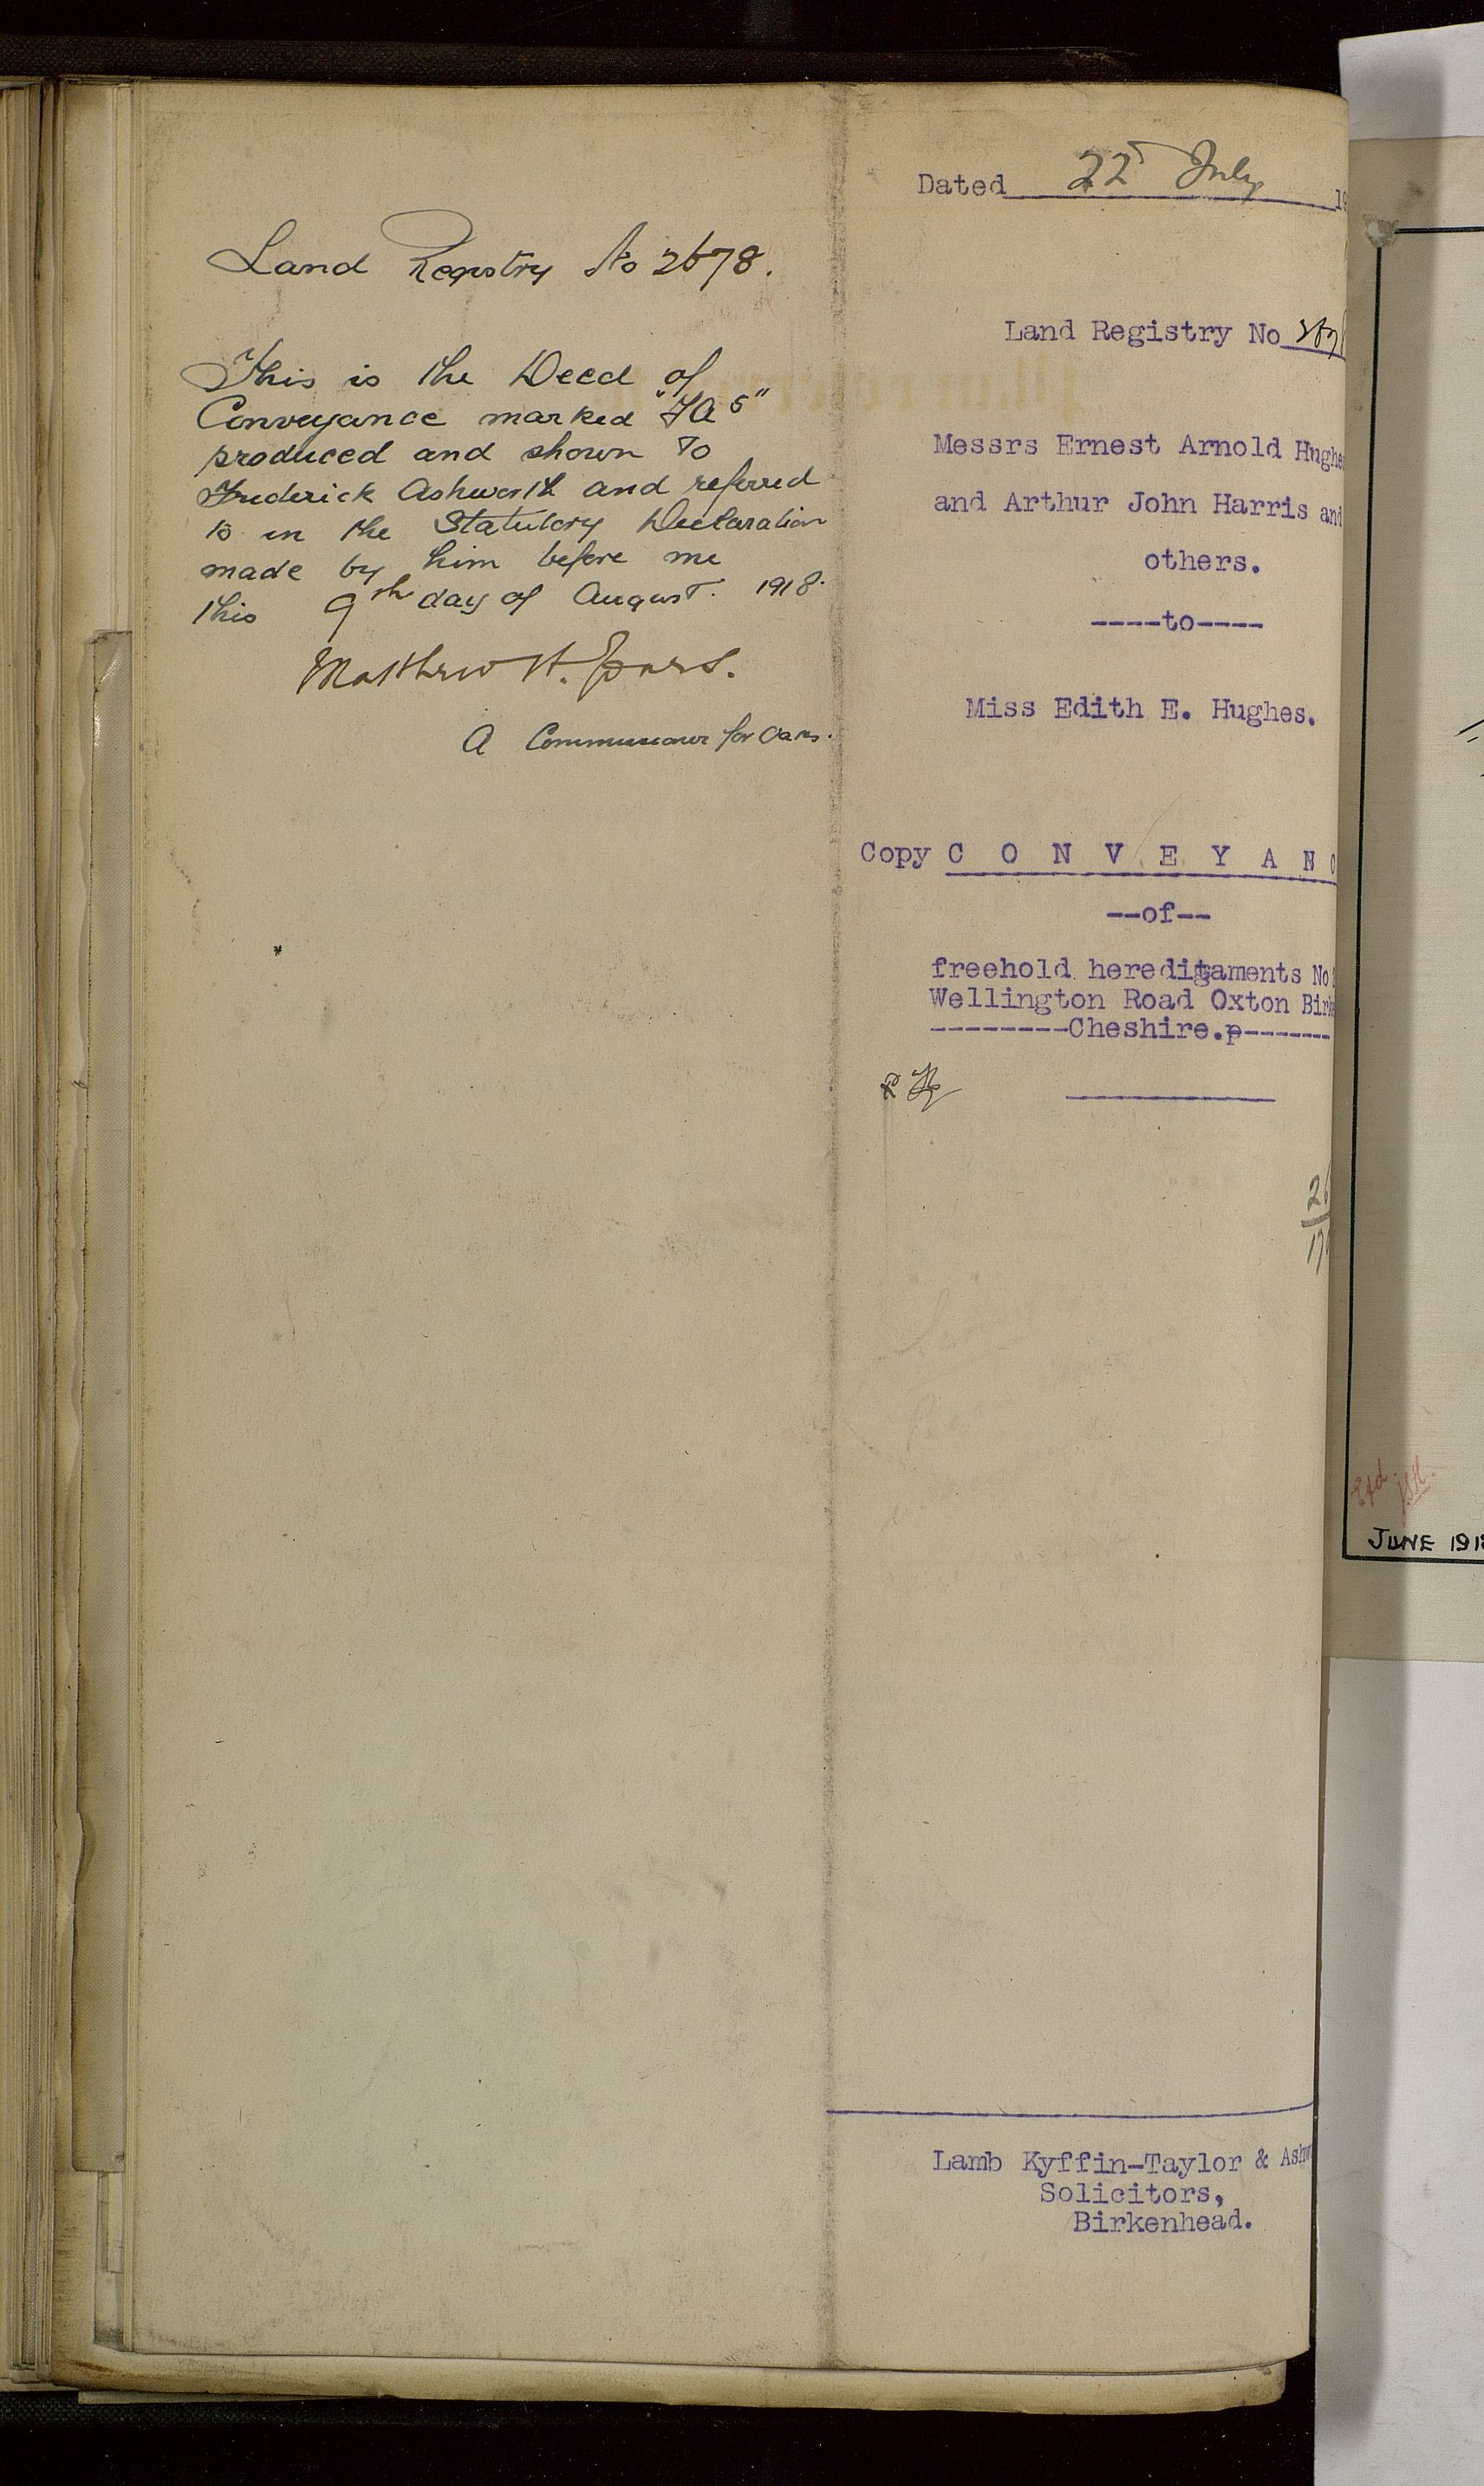 Land Registry No 2678.
This is the Deed of
Conveyance marked "FA 5"
produced and shown to
Frederick Ashworth and referred
to in the Statutory Declaration
made by him before me
this 9th day of August. 1918.
Matthew H. Jones.
A Commissioner for Oaths.
Dated 22 July 19
Land Registry No 267
Messrs Ernest Arnold Hughe
and Arthur John Harris and
others.
----to----
Miss Edith E. Hughes.
Copy C O N V E Y A N C
--of--
freehold heredigaments No
Wellington Road Oxton Birk
--------Cheshire.p-------
26
17
Lamb Kyffin-Taylor & Ashw
Solicitors,
Birkenhead.
Exd. J.S.H.
JUNE 1918